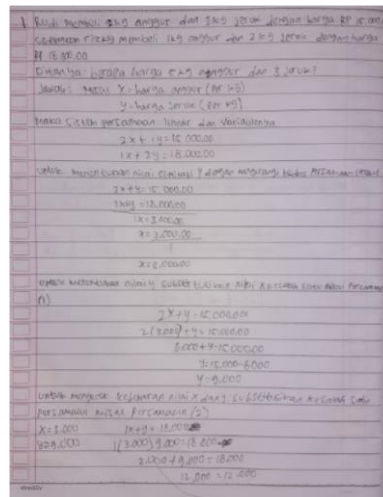 1 Rudi membeli 2kg anggur dan 1kg jeruk dengan harga RP 15.000
sedangkan rizky membeli 1kg anggur dan 2kg jeruk dengan harga
RP 18.000.00
Ditanya: berapa harga 5kg anggur dan 3 jeruk?
Jawab: Misal x = harga anggur (per kg)
y = harga jeruk (per kg)
Maka sistem persamaan linear dan Variabelnya
2x + 1y = 15.000.00
1x + 2y = 18.000.00
untuk menentukan nilai eliminasi y dengan mengurangi kedua persamaan
2x + y = 15.000.00
= 18.000.00
1x = 3.000.00
x = 3.000.00
x = 3.000.00
untuk menentukan nilai y substitusikan nilai x
2x + y = 15.000.00
2(3.000) + y = 15.000.00
6.000 + y = 15.000.00
y = 15.000 - 6000
y = 9.000
untuk kebenaran nilai x dan y substitusikan
persamaan misal persamaan (2)
x = 3.000 1x + y = 18.000
y = 9.000 1(3.000) 9.000 = 18.000
3.000 + 9.000 = 18.000
12.000 = 12.000